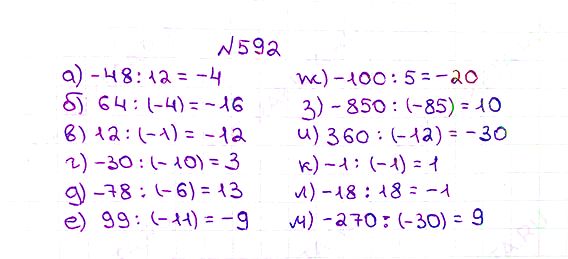 №592
а) -48 : 12 = -4
б) 64 : (-4) = -16
в) 12 : (-1) = -12
г) -30 : (-10) = 3
д) -78 : (-6) = 13
е) 99 : (-11) = -9
ж) -100 : 5 = -20
з) -850 : (-85) = 10
и) 360 : (-12) = -30
к) -1 : (-1) = 1
л) -18 : 18 = -1
м) -270 : (-30) = 9